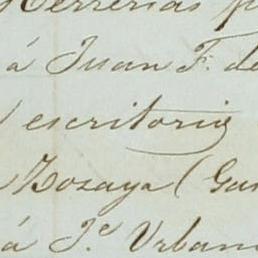 Herrerias
á Juan F. de
escritorio
Zozaya (
á Je. Urbano